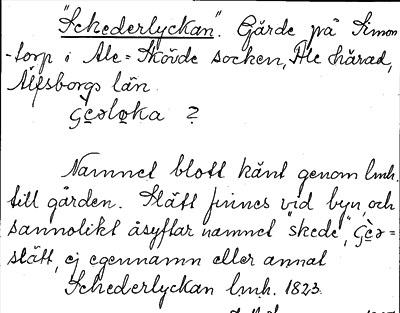 "Schederlyckan". Gärde på Simon
-torp i Ale=Skövde socken, Ale härad,
Älfsborgs län.
Gèdløka ?
Namnet blott känt genom lmh.
till gården. Slätt finnes vid byn, och
sannolikt åsyftar namnet "skede",
slätt, ej egennamn eller annat
Schederlyckan lmh. 1823.